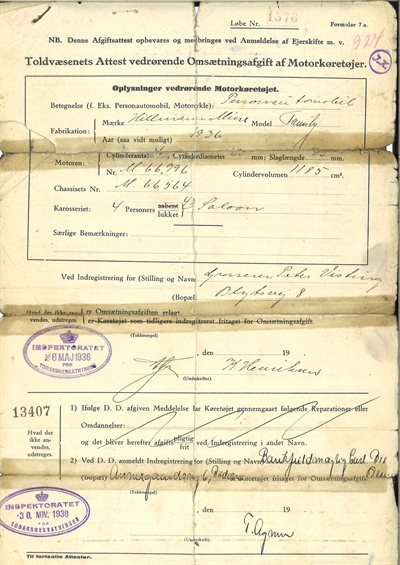 Løbe Nr. 1576 Formular 7 a.
NB. Denne Afgiftsattest opbevares og medbringes ved Anmeldelse af Ejerskifte m. v.
924
Toldvæsenets Attest vedrørende Omsætningsafgift af Motorkøretøjer.
Oplysninger vedrørende Motorkøretøjet.
Betegnelse (f. Eks. Personautomobil, Motorcykle): Personautomobil
Fabrikation: Mærke Hillmann Minx Model Family
Aar (saa vidt muligt) 1936
Motoren: Cylinderantal 4 Cylinderdiameter mm; Slaglængde mm.
Nr. M. 66,296 Cylindervolumen 1185 cm³.
Chassisets Nr. M. 66,564
Karosseriet: 4 Personers aabent lukket Saloon
Særlige Bemærkninger:
Ved Indregistrering for (Stilling og Navn) Grosserer Peter
(Bopæl) 8
Hvad der ikke anvendes, udstreges.
er Omsætningsafgiften erlagt.
er Køretøjet som tidligere indregistreret fritaget for Omsætningsafgift.
(Toldstempel)
INSPEKTORATET
26 MAJ 1936
FOR
TOBAKSBESKATNINGEN
, den 19
K Henriksen
(Underskrift).
13407
Hvad der ikke anvendes, udstreges.
1) Ifølge D. D. afgiven Meddelelse har Køretøjet gennemgaaet følgende Reparationer eller
Omdannelser:
og det bliver herefter afgifts pligtig frit ved Indregistrering i andet Navn.
2) Ved D. D. anmeldt Indregistrering for (Stilling og Navn) Carl
(Bopæl) 6, Køretøjet fritaget for Omsætningsafgift.
(Toldstempel)
INSPEKTORATET
30. NOV. 1938
FOR
TOBAKSBESKATNINGEN
, den 19
(Underskrift).
Til fortsatte Attester.